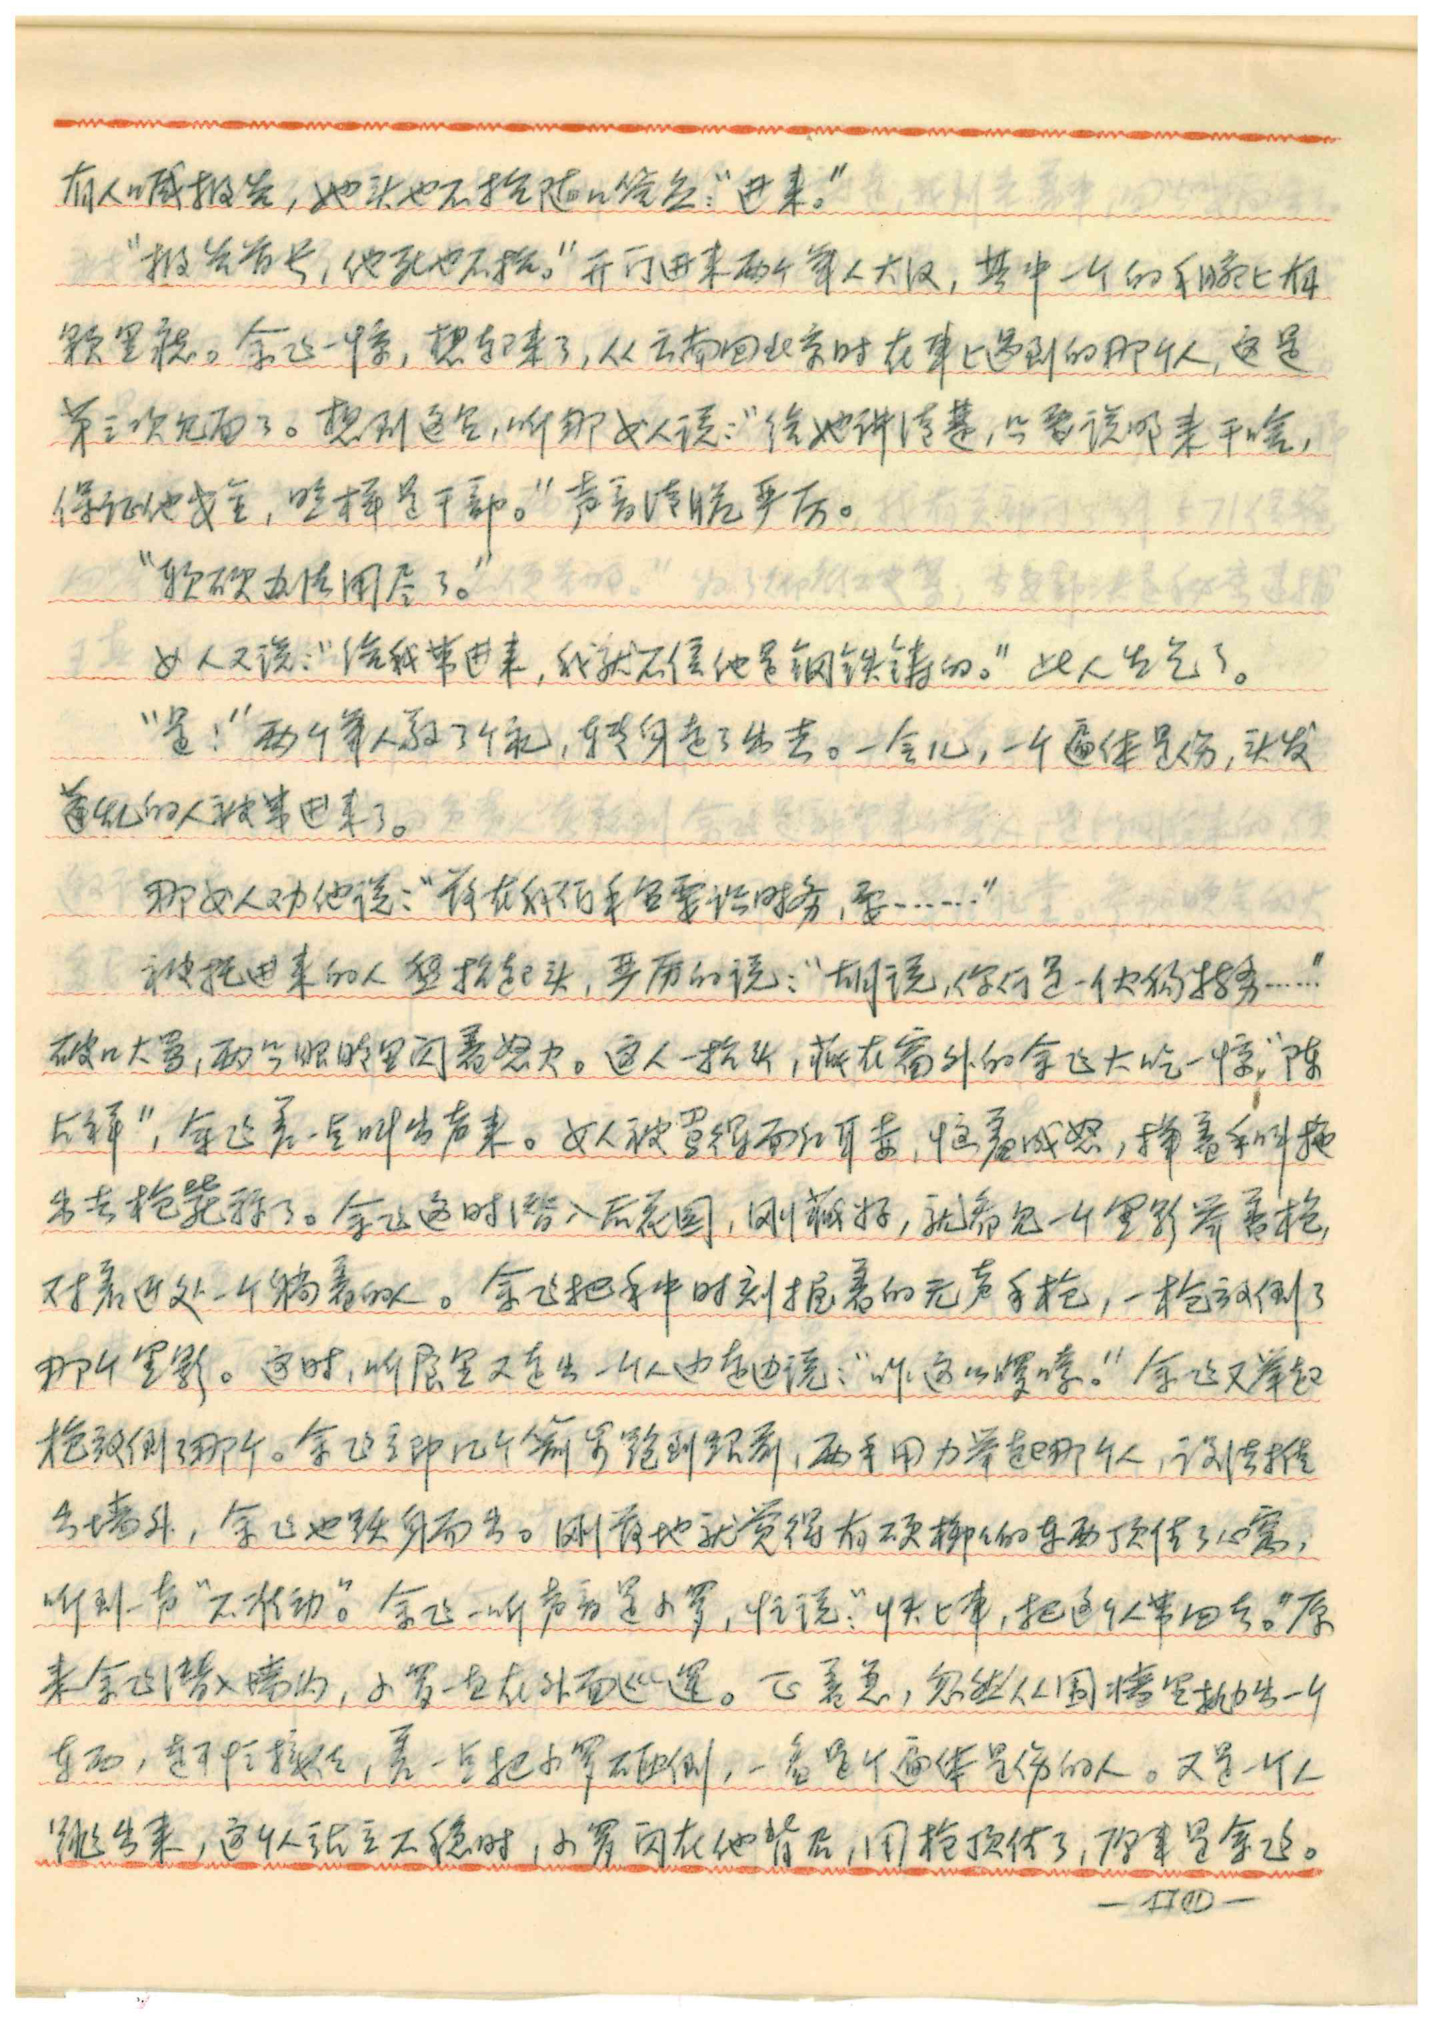 有人喊报告，她头也不抬随口答应：“进来。”
“报告首长，他死也不招。”开门进来两个军人大汉，其中一个的手腕上有
颗黑痣。余飞一惊，想起来了，从云南回北京时在车上遇到的那个人，这是
第三次见面了。想到这里，听那女人说：“给他讲清楚，只要说明来干啥，
保证他安全，照样是干部。”声音清脆严厉。
“软硬办法用尽了。”
女人又说：“给我带进来，我就不信他是钢铁铸的。”此人生气了。
“是！”两个军人敬了个礼，转身走了出去。一会儿，一个遍体是伤，头发
蓬乱的人被带进来了。
那女人劝他说：“落在我们手里要识时务，要……”
被押进来的人猛抬起头，严厉的说：“胡说，你们是一伙狗特务……”
破口大骂，两只眼睛里闪着怒火。这人一抬头，藏在窗外的余飞大吃一惊，“陈
占祥”，余飞差一点叫出声来。女人被骂得面红耳赤，恼羞成怒，挥着手叫拖
出去枪毙算了。余飞这时潜入后花园，刚藏好，就看见一个黑影举着枪，
对着近处一个躺着的人。余飞把手中时刻握着的无声手枪，一枪放倒了
那个黑影。这时，听屋里又走出一个人边走边说：“咋这么啰嗦。”余飞又举起
枪放倒了那个。余飞立即几个箭步跑到跟前，两手用力举起那个人，设法推
出墙外，余飞也跃身而出。刚落地就觉得有硬梆梆的东西顶住了心窝，
听到一声“不准动”。余飞一听声音是小罗，忙说：“快上车，把这个人带回去。”原
来余飞潜入墙内，小罗一直在外面巡逻。正着急，忽然从围墙里抛出一个
东西，赶忙接住，差一点把小罗砸倒，一看是个遍体是伤的人。又是一个人
跳出来，这个人站立不稳时，小罗闪在他背后，用枪顶住了，原来是余飞。